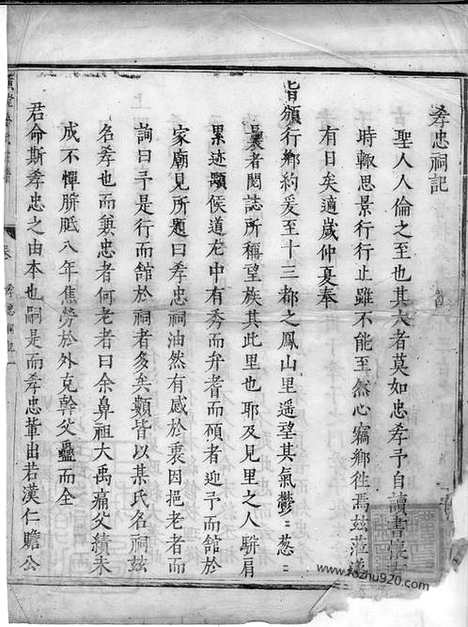 孝忠祠記
聖人人倫之至也其大者莫如忠孝予自讀書懷古
時輒思景行行止雖不能至然心竊鄉徃焉茲蒞
有日矣適歲仲夏奉
旨頒行鄉約爰至十三都之鳳山里遥望其氣鬱〻葱〻
曩者閱誌所稱望族其此里也耶及見里之人駢肩
累迹顒俟道左中有秀而弁者而碩者迎予而舘於
家廟見所題曰孝忠祠油然有感於衷因挹老者而
詢曰予是行而舘於祠者多矣類皆以某氏名祠兹
名孝也而兼忠者何老者曰余鼻祖大禹痛父績未
成不憚胼胝八年焦勞於外克幹父蠱而全
君命斯孝忠之由本也嗣是而孝忠輩出若漢仁贍公
孝忠祠記
www.kozhu920.com